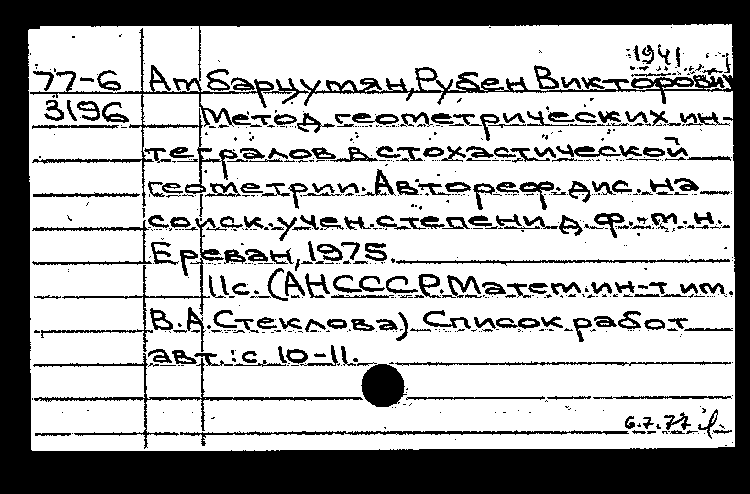 1941
77-6 Амбарцумян, Рубен Викторович
3196 Метод геометрических ин-
тегралов в стохастической
геометрии. Автореф. дис. на
соиск. учен. степени д. ф.-м. н.
Ереван, 1975.
11с. (АН СССР. Матем. ин-т им.
В.А. Стеклова) Список работ
авт.: с. 10-11.
6.7.77